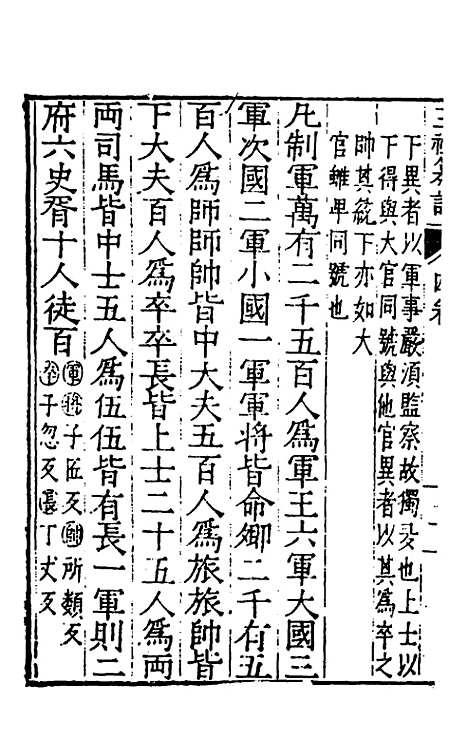 下異者以軍事嚴須監察故獨多也上士以
下得與大官同號與他官異者以其為卒之
帥其統下亦如大
官雖卑同號也
凡制軍萬有二千五百人為軍王六軍大國三
軍次國二軍小國一軍軍將皆命卿二千有五
百人為師師帥皆中大夫五百人為旅旅帥皆
下大夫百人為卒卒長皆上士二十五人為兩
兩司馬皆中士五人為伍伍皆有長一軍則二
府六史胥十人徒百
將子匠反帥所類反
卒子忽反長丁丈反